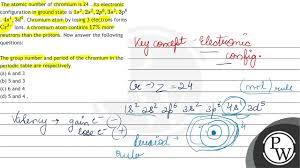 The atomic number of chromium is 24. Its electronic
configuration in ground state is 1s², 2s², 2p⁶, 3s², 3p⁶
, 4s¹, 3d⁵. Chromium atom by losing 3 electrons forms
Cr³⁺ ions. A chromium atom contains 17% more
neutrons than the protons. Now answer the following
questions:
The group number and period of the chromium in the
periodic table are respectively
(a) 6 and 3
(b) 6 and 4
(c) 5 and 3
(d) 5 and 4
Key concept - Electronic
config.
Cr → Z = 24
(n+l) rule
1s² 2s² 2p⁶ 3s² 3p⁶ 4s¹ 3d⁵
Valency → gain e⁻ -
lose e⁻ +
Period
rule
P
W